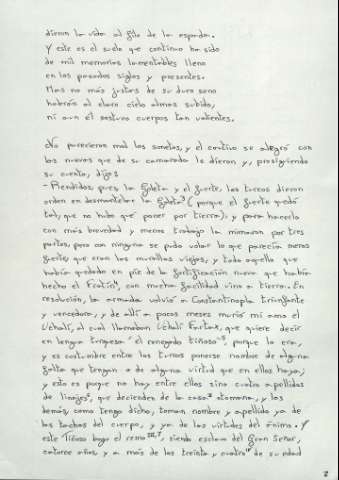 dieron la vida al filo de la espada.
Y este es el suelo que continuo ha sido
de mil memorias lamentables lleno
en los pasados siglos y presentes.
Mas no más justas de su duro seno
habrán al claro cielo almas subido,
ni aun él sostuvo cuerpos tan valientes.
No parecieron mal los sonetos, y el cautivo se alegró con
las nuevas que de su camarada le dieron y, prosiguiendo
su cuento, dijo:
- Rendidos, pues, la Goleta y el fuerte, los turcos dieron
orden en desmantelar la Goleta (porque el fuerte quedó
tal, que no hubo qué poner por tierra), y para hacerlo
con más brevedad y menos trabajo la minaron por tres
partes, pero con ninguna se pudo volar lo que parecía menos
fuerte, que eran las murallas viejas, y todo aquello que
había quedado en pie de la fortificación nueva que había
hecho el Fratín, con mucha facilidad vino a tierra. En
resolución, la armada volvió a Constantinopla triunfante
y vencedora, y de allí a pocos meses murió mi amo el
Uchalí, al cual llamaban Uchalí Fartax, que quiere decir
en lengua turquesa "el renegado tiñoso", porque lo era,
y es costumbre entre los turcos ponerse nombre de alguna
falta que tengan o de alguna virtud que en ellos haya;
y esto es porque no hay entre ellos sino cuatro apellidos
de linajes, que decienden de la casa otomana, y los
demás, como tengo dicho, toman nombre y apellido ya de
las tachas del cuerpo, y ya de las virtudes del ánimo. Y
este Tiñoso bogó el remo, siendo esclavo del Gran Señor,
catorce años, y a más de los treinta y cuatro de su edad
2